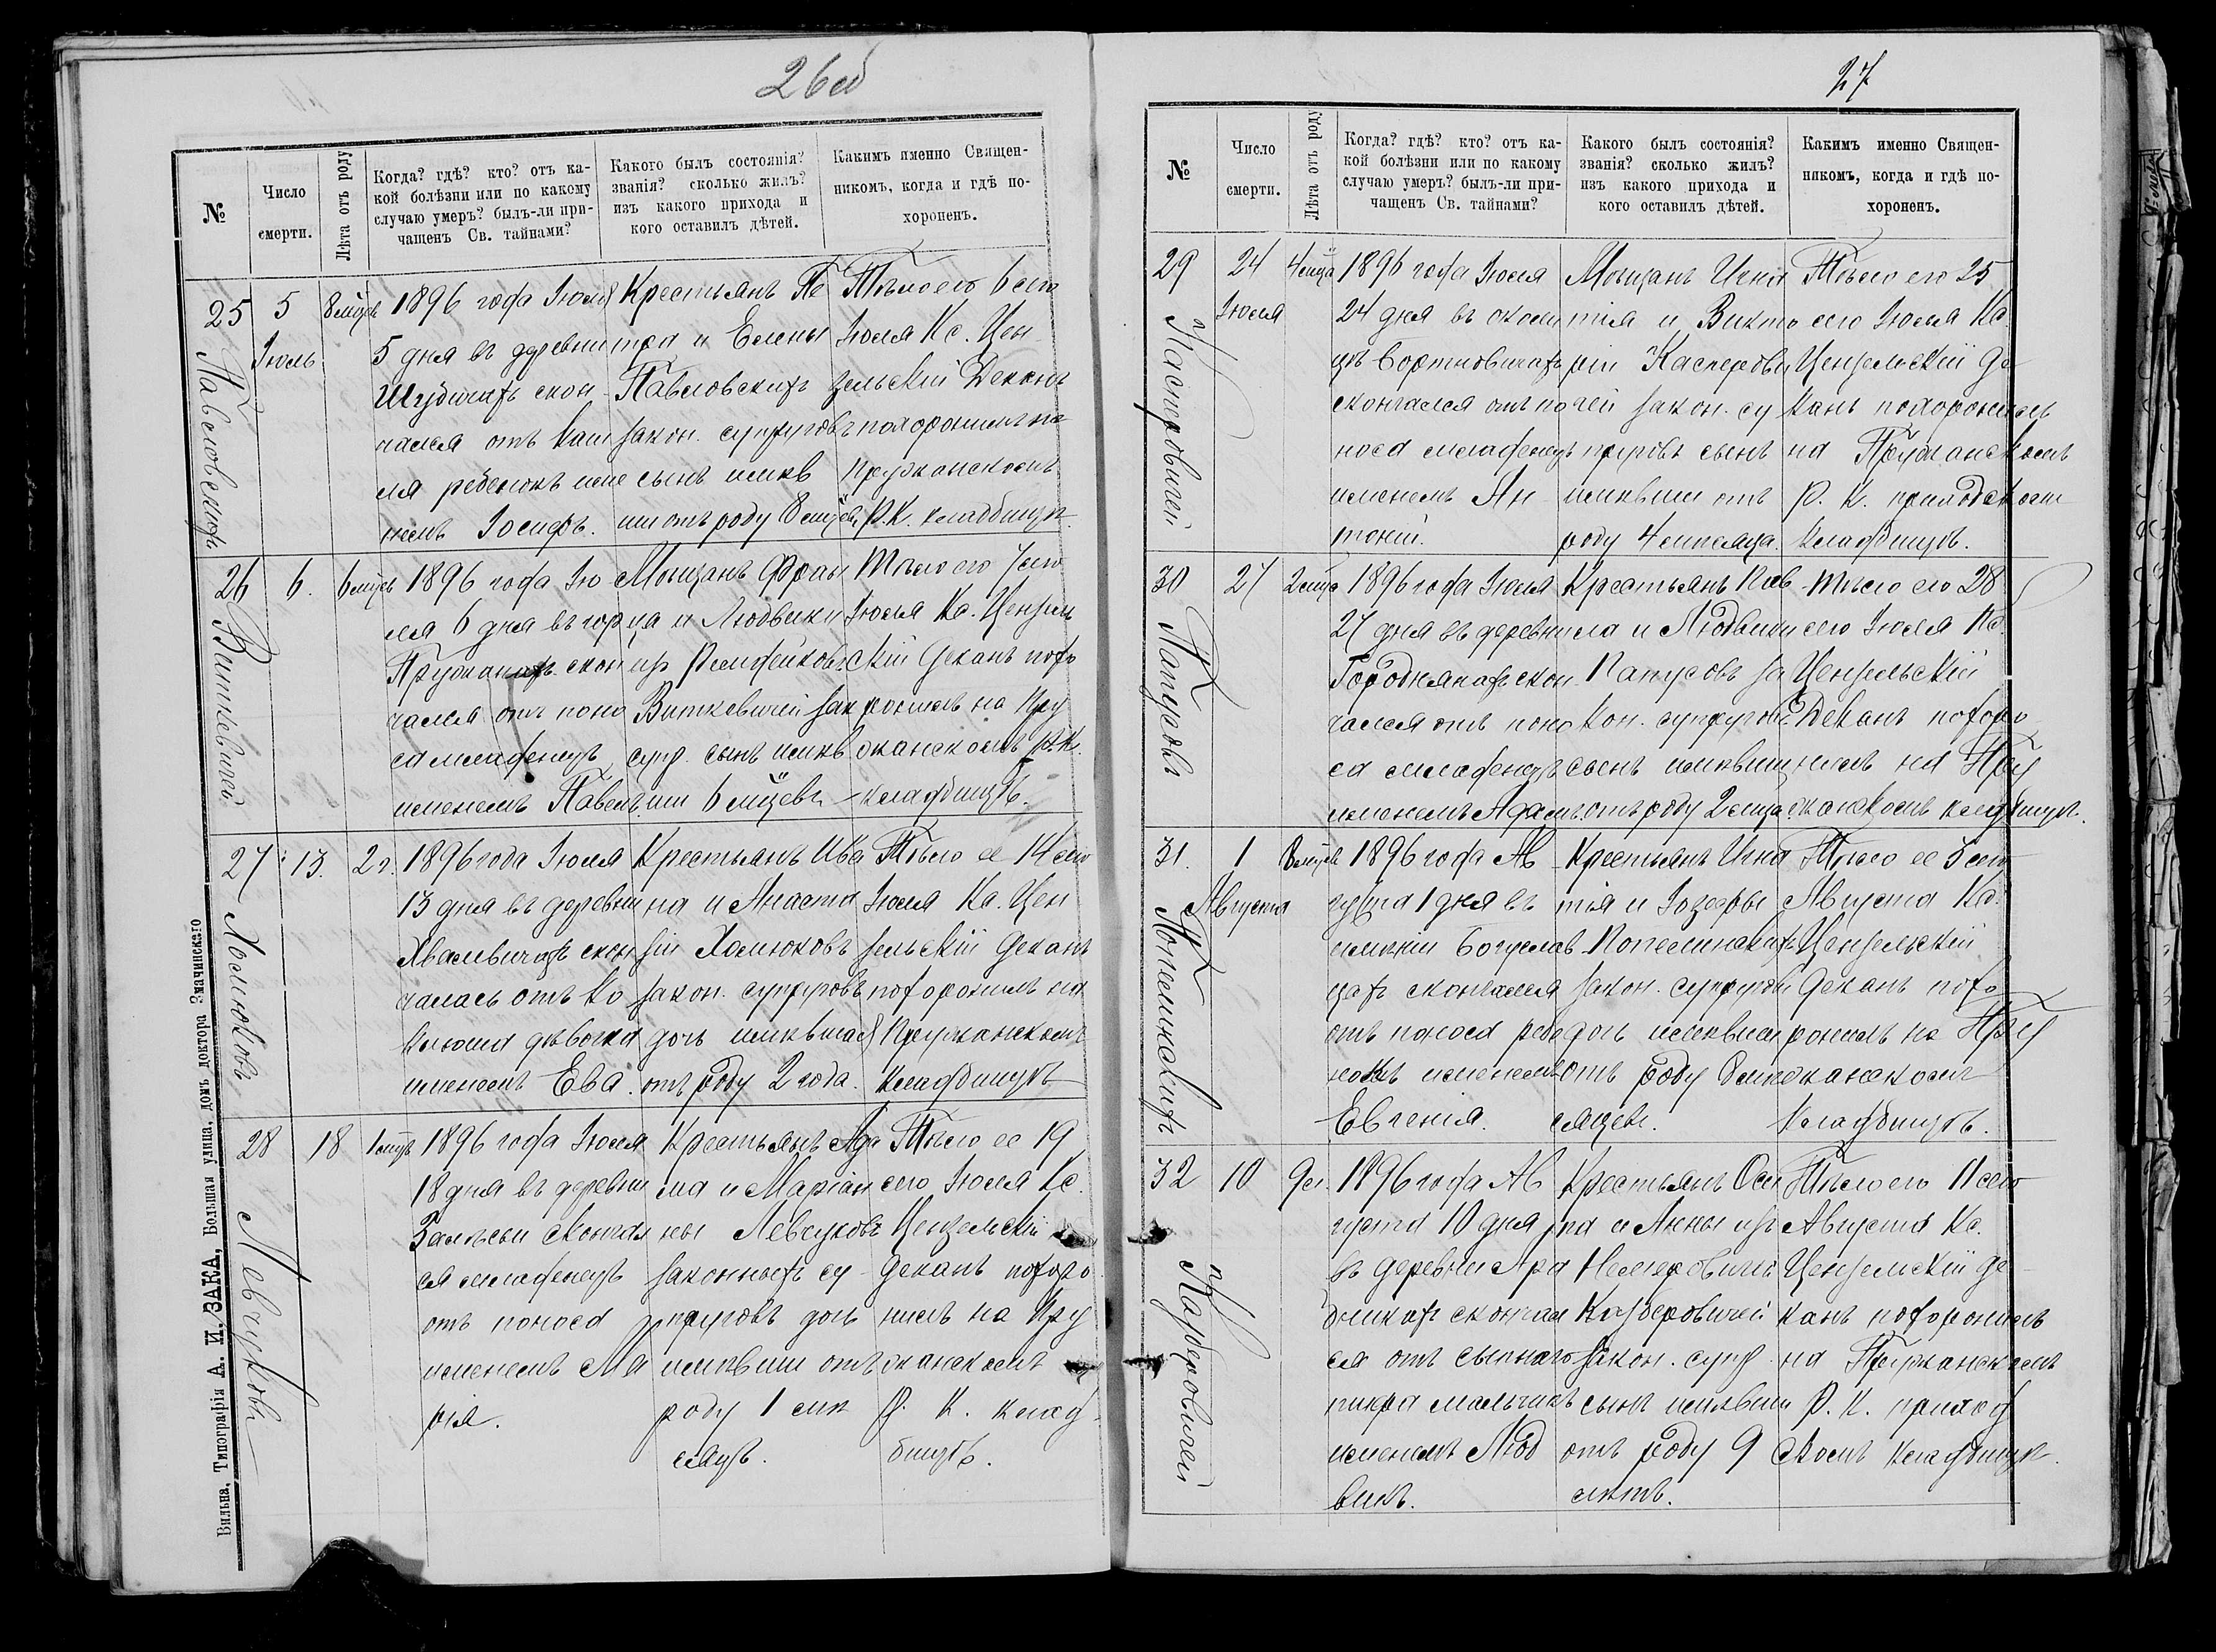 26об
№
Число
смерти.
Лѣта отъ роду
Когда? гдѣ? кто? отъ ка-
кой болѣзни или по какому
случаю умеръ? былъ-ли при-
чащенъ Св. тайнами?
Какого былъ состоянія?
званія? сколько жилъ?
изъ какого прихода и
кого оставилъ дѣтей.
Какимъ именно Священ-
никомъ, когда и гдѣ по-
хороненъ.
25
Павловскихъ
5
Іюль
8 мцевъ
1896 года Іюля
5 дня въ деревни
скон
чался отъ каш
ля ребенокъ име
немъ Іосифъ.
Крестьянъ Пе
тра и Елены
Павловскихъ
закон. супруговъ
сынъ имѣв
ши отъ роду 8 мцевъ
Тѣло его 6 сего
Іюля Кс. Цен
зельскій Деканъ
похоронилъ на
Пружанскомъ
Р.К. кладбищѣ.
26
Виткевичей
6.
6 мцевъ
1896 года Ію
ля 6 дня въ гор
Пружанахъ скон
чался отъ поно
са младенецъ
именемъ Павелъ
Мѣщанъ Фран
ца и Людвики
изъ Виткевичей зак
супр. сынъ имѣв
ши 6 мцевъ
Тѣло его 7 сего
Іюля Кс. Цензель
скій Деканъ похо
ронилъ на Пру
жанскомъ Р.К.
кладбищѣ.
27
Холюковъ
13.
2 г.
1896 года Іюля
13 дня въ деревни
Хвалевичахъ скон
чалась отъ ко
клюша дѣвочка
именемъ Ева.
Крестьянъ Ива
на и Анаста
зіи Холюковъ
закон. супруговъ
дочь имѣвшая
отъ роду 2 года.
Тѣло ее 14 сего
Іюля Кс. Цен
зельскій Деканъ
похоронилъ на
Пружанскомъ
кладбищѣ
28
Левчуковъ
18
1 мцъ
1896 года Іюля
18 дня въ деревни
Залѣсьи скончал
ся младенецъ
отъ поноса
именемъ Ма
рія.
Крестьянъ Ада
ма и Маріан
ны Левчуковъ
законныхъ су
пруговъ дочь
имѣвши отъ
роду 1 мѣ
сяцъ.
Тѣло ее 19
сего Іюля Кс.
Цензельскій
Деканъ похоро
нилъ на Пру
жанскомъ
Р. К. клад
бищѣ.
Вильна, Типографія А. И. ЗАКА, Большая улица, домъ доктора Змачинскаго
27
№
Число
смерти.
Лѣта отъ роду
Когда? гдѣ? кто? отъ ка-
кой болѣзни или по какому
случаю умеръ? былъ-ли при-
чащенъ Св. тайнами?
Какого былъ состоянія?
званія? сколько жилъ?
изъ какого прихода и
кого оставилъ дѣтей.
Какимъ именно Священ-
никомъ, когда и гдѣ по-
хороненъ.
29
Касперовичей
24
Іюля
4 мца
1896 года Іюля
24 дня въ околи
цѣ Бортновичахъ
скончался отъ по
носа младенецъ
именемъ Ан
тоній.
Мѣщанъ Игна
тія и Викто
ріи Касперови
чей закон. су
пруговъ сынъ
имѣвши отъ
роду 4 мѣсяца.
Тѣло его 25
сего Іюля Кс.
Цензельскій Де
канъ похоронилъ
на Пружанскомъ
Р. К. приходскомъ
кладбищѣ.
30
Папусовъ
27
2 мца
1896 года Іюля
27 дня въ деревни
Городнянахъ скон
чался отъ поно
са младенецъ
именемъ Адамъ
Крестьянъ Пав
ла и Людвики
Папусовъ за
кон. супруговъ
сынъ имѣвши
отъ роду 2 мца
Тѣло его 28
сего Іюля Кс.
Цензельскій
Деканъ похоро
нилъ на Пру
жанскомъ кладбищѣ.
31.
1
Августа
8 мцевъ
1896 года Ав
густа 1 дня въ
имѣніи Богуслав
цахъ скончался
отъ поноса ребе
нокъ именемъ
Евгенія.
Крестьянъ Игна
тія и Іозефы
закон. супруговъ
дочь имѣвши
отъ роду 8 мѣ
сяцевъ.
Тѣло ее 3 сего
Августа Кс.
Цензельскій
Деканъ похо
ронилъ на Пру
жанскомъ
кладбищѣ.
32
10
9 л.
1896 года Ав
густа 10 дня
въ деревни
скончал
ся отъ сыпнаго
тифа мальчикъ
именемъ Люд
викъ.
Крестьянъ Оси
па и Анны изъ
закон. супр.
сынъ имѣвши
отъ роду 9
лѣтъ.
Тѣло его 11 сего
Августа Кс.
Цензельскій Де
канъ похоронилъ
на Пружанскомъ
Р. К. приход
скомъ кладбищѣ.